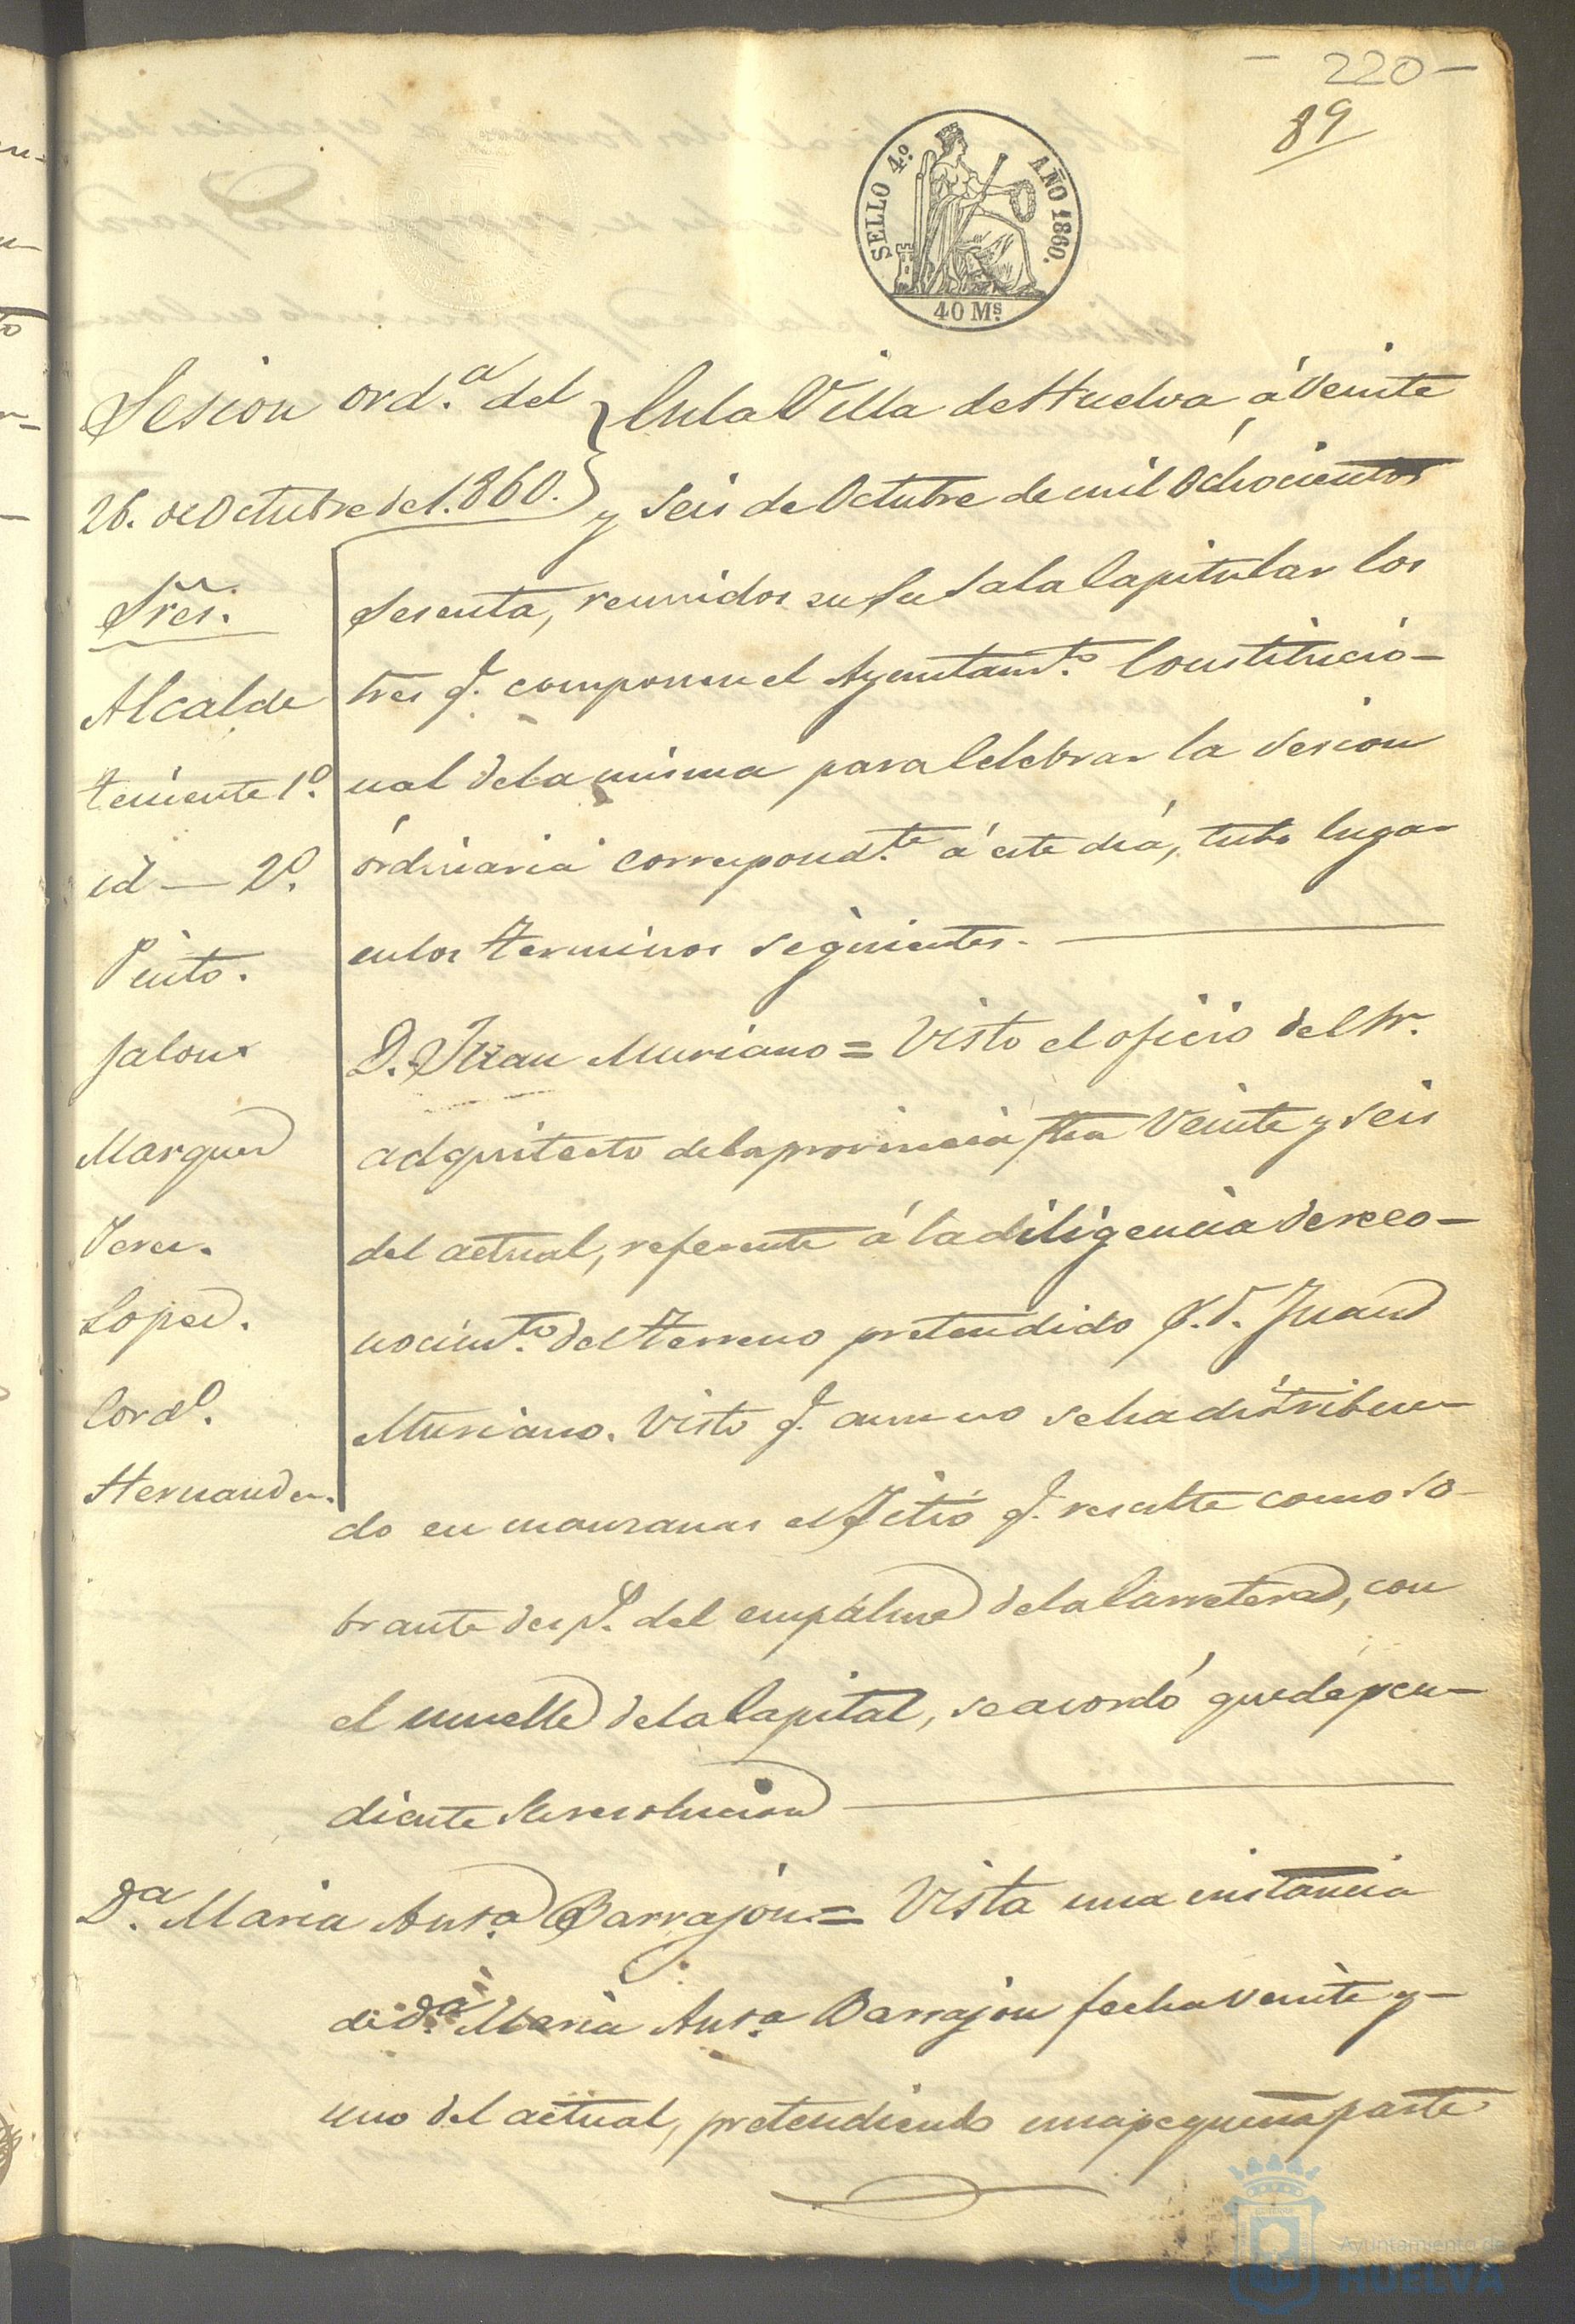 - 220 -
89
SELLO 4º. AÑO 1860.
40 Ms.
Sesion ord.ª del
26. de Octubre de 1.860.
En la Villa de Huelva á veinte
y seis de Octubre de mil ochocientos
Sres.
Alcalde
teniente 1º.
id — 2º.
Pinto.
Jalon
Marquez
Perez.
Lopez.
Cord.º
Hernandez.
sesenta, reunidos en su Sala Capitular los
tres q. componen el Ayuntam.to Constitucio-
nal de la misma para celebrar la sesion
órdinaria correspond.te á este dia, tubo lugar
en los terminos siguientes.
D. Juan Muriano = Visto el oficio del Sr.
adquitecto de la provincia fha veinte y seis
del actual, referente á la diligencia de reco-
nocim.to del terreno pretendido p.r D. Juan
Muriano. Visto q. aun no se ha distribui-
do en manzanas el Sitio q. resulte como so-
brante desp.s del empalme de la Carretera, con
el muelle de la Capital, se acordó quede pen-
diente de resolucion
D.ª Maria Ant.ª Barrajon = Vista una instancia
de D.ª Maria Ant.ª Barrajon fecha veinte y
uno del actual, pretendiendo una pequeña parte
Ayuntamiento de
HUELVA